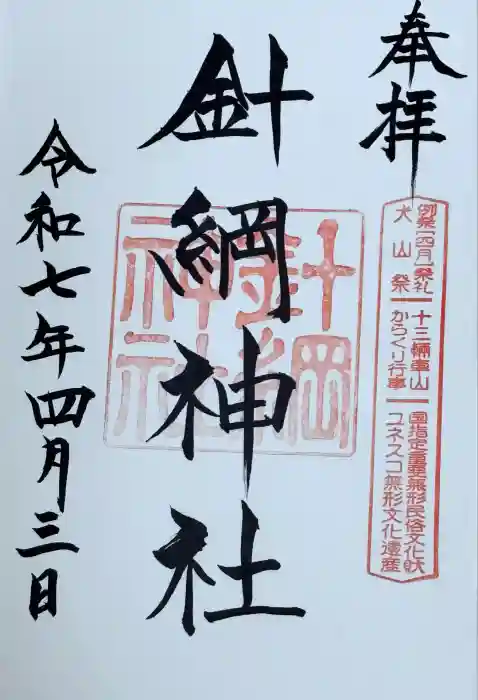 奉拝
例祭(四月)祭礼
犬山祭
十三輌車山
からくり行事
国指定重要無形民俗文化財
ユネスコ無形文化遺産
針綱神社
針綱神社
令和七年四月三日